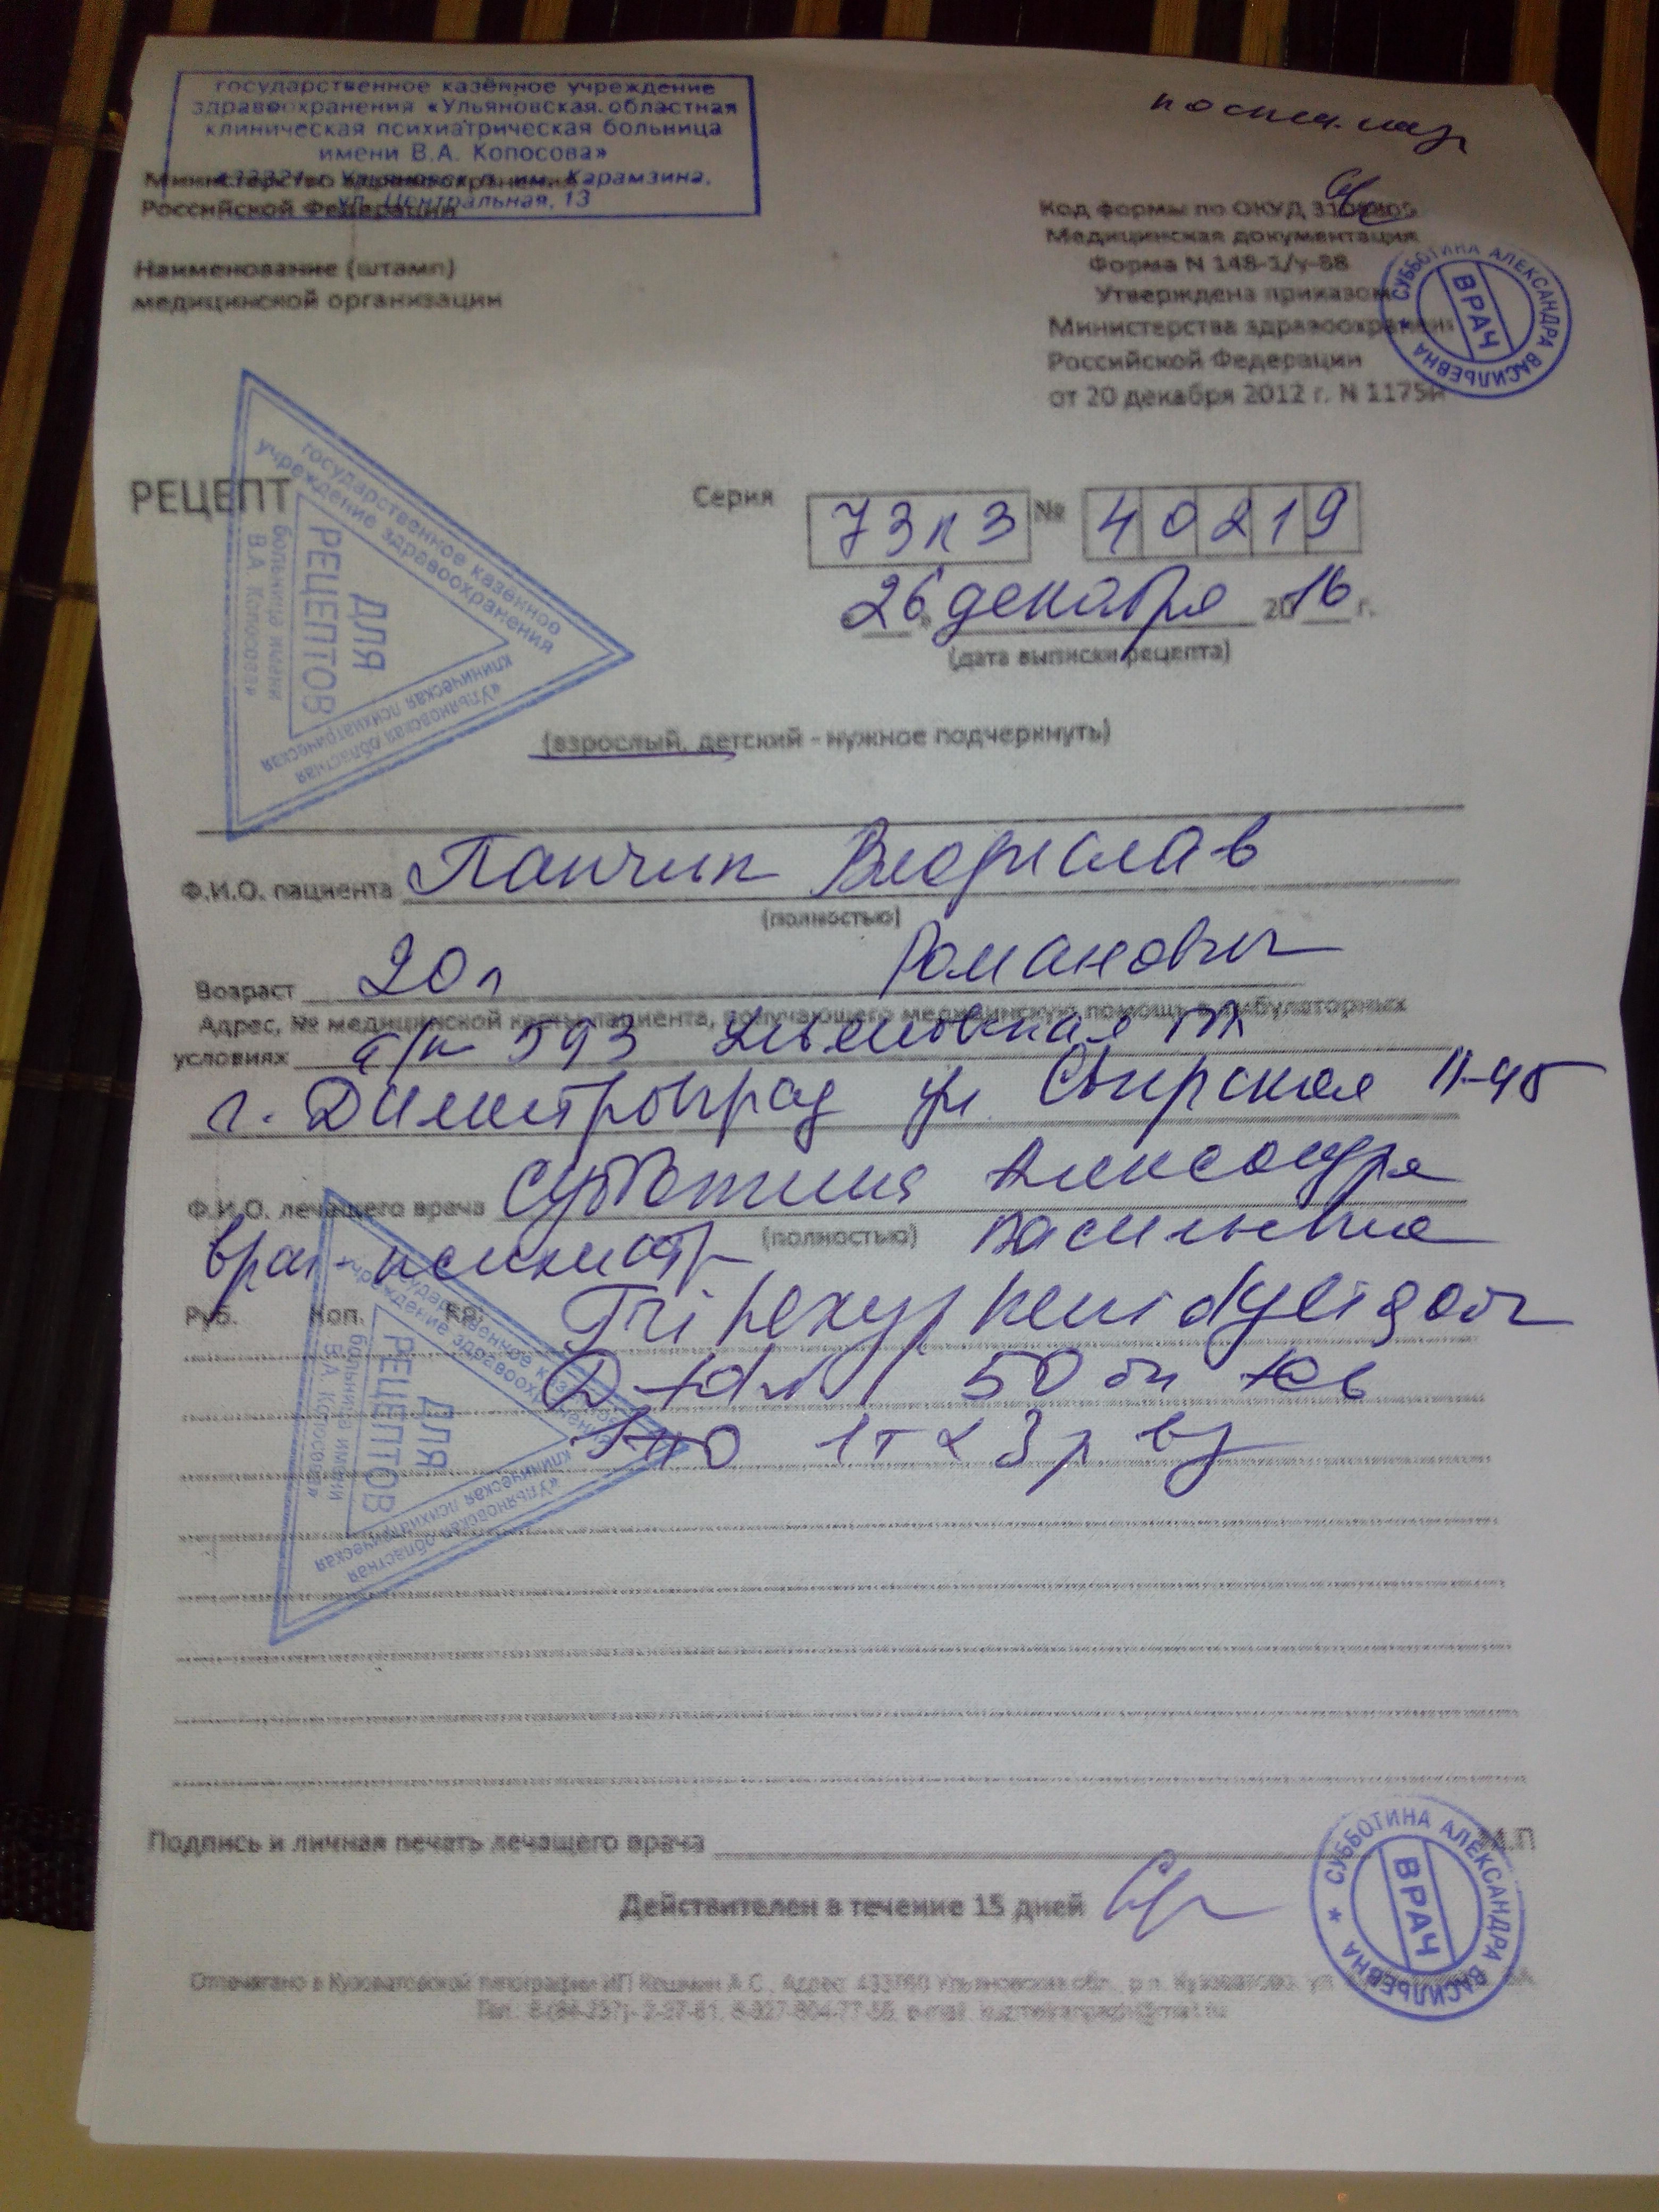 по спец. наз
государственное казённое учреждение
здравоохранения «Ульяновская областная
клиническая психиатрическая больница
имени В.А. Копосова»
Ульяновск, п. им. Карамзина,
ул. Центральная, 13
Министерство здравоохранения
Российской Федерации
Наименование (штамп)
медицинской организации
Код формы по ОКУД
Медицинская документация
Форма N 148-1/у-88
Утверждена приказом
Министерства здравоохранени
Российской Федерации
от 20 декабря 2012 г. N 1175н
СУББОТИНА АЛЕКСАНДРА ВАСИЛЬЕВНА *
ВРАЧ
РЕЦЕПТ
Серия 73пЗ № 40219
26 декабря 2016 г.
(дата выписки рецепта)
государственное казённое
учреждение здравоохранения
«Ульяновская областная
клиническая психиатрическая
больница имени
В.А. Копосова»
ДЛЯ
РЕЦЕПТОВ
(взрослый, детский - нужное подчеркнуть)
Ф.И.О. пациента Панчик Владислав
(полностью)
Возраст 20 л Романович
Адрес, № медицинской карты пациента, получающего медицинскую помощь в амбулаторных
условиях а/к 593 Ульяновская
г. Димитровград ул. Свирская 11-95
Ф.И.О. лечащего врача Субботина Александра
(полностью) Васильевна
врач-психиатр
Руб. Коп. Rp:
Trihexyphenidyl
50
1т х 3 р
государственное казённое
учреждение здравоохранения
«Ульяновская областная
клиническая психиатрическая
больница имени
В.А. Копосова»
ДЛЯ
РЕЦЕПТОВ
Подпись и личная печать лечащего врача М.П
Действителен в течение 15 дней
СУББОТИНА АЛЕКСАНДРА ВАСИЛЬЕВНА *
ВРАЧ
Отпечатано в Кузоватовской типографии ИП А.С., Адрес: 433760 Ульяновская обл., р.п. Кузоватово, ул.
Тел. 8-(84-237)- 2-37-61, e-mail: